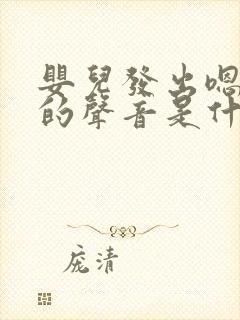 嬰兒發出嗯
的聲音是什
庞清